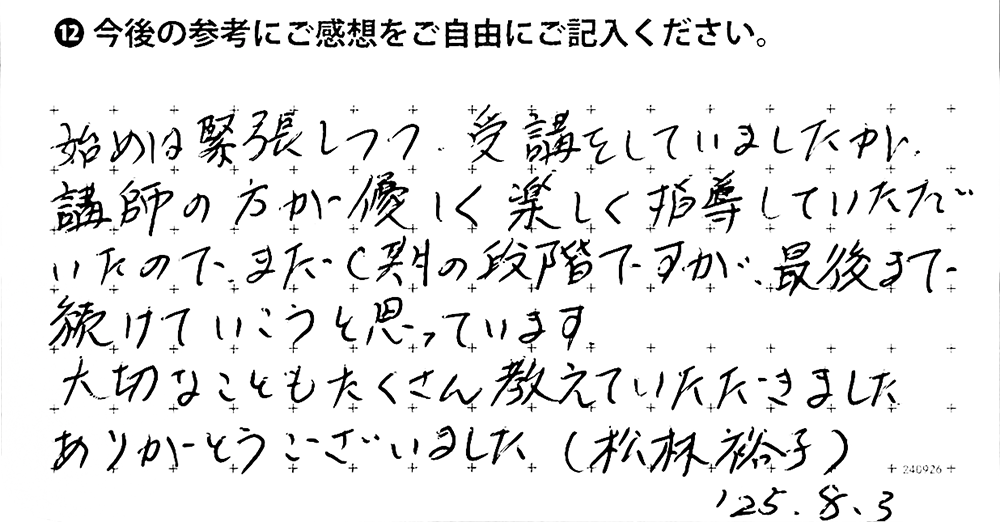 ⓬ 今後の参考にご感想をご自由にご記入ください。
始めは緊張しつつ、受講をしていましたが、
講師の方が優しく楽しく指導していただで
いたので、まだC契の段階ですが、最後まで
続けていこうと思っています。
大切なこともたくさん教えていただきました
ありがとうございました (松林裕子)
240926
'25.8.3